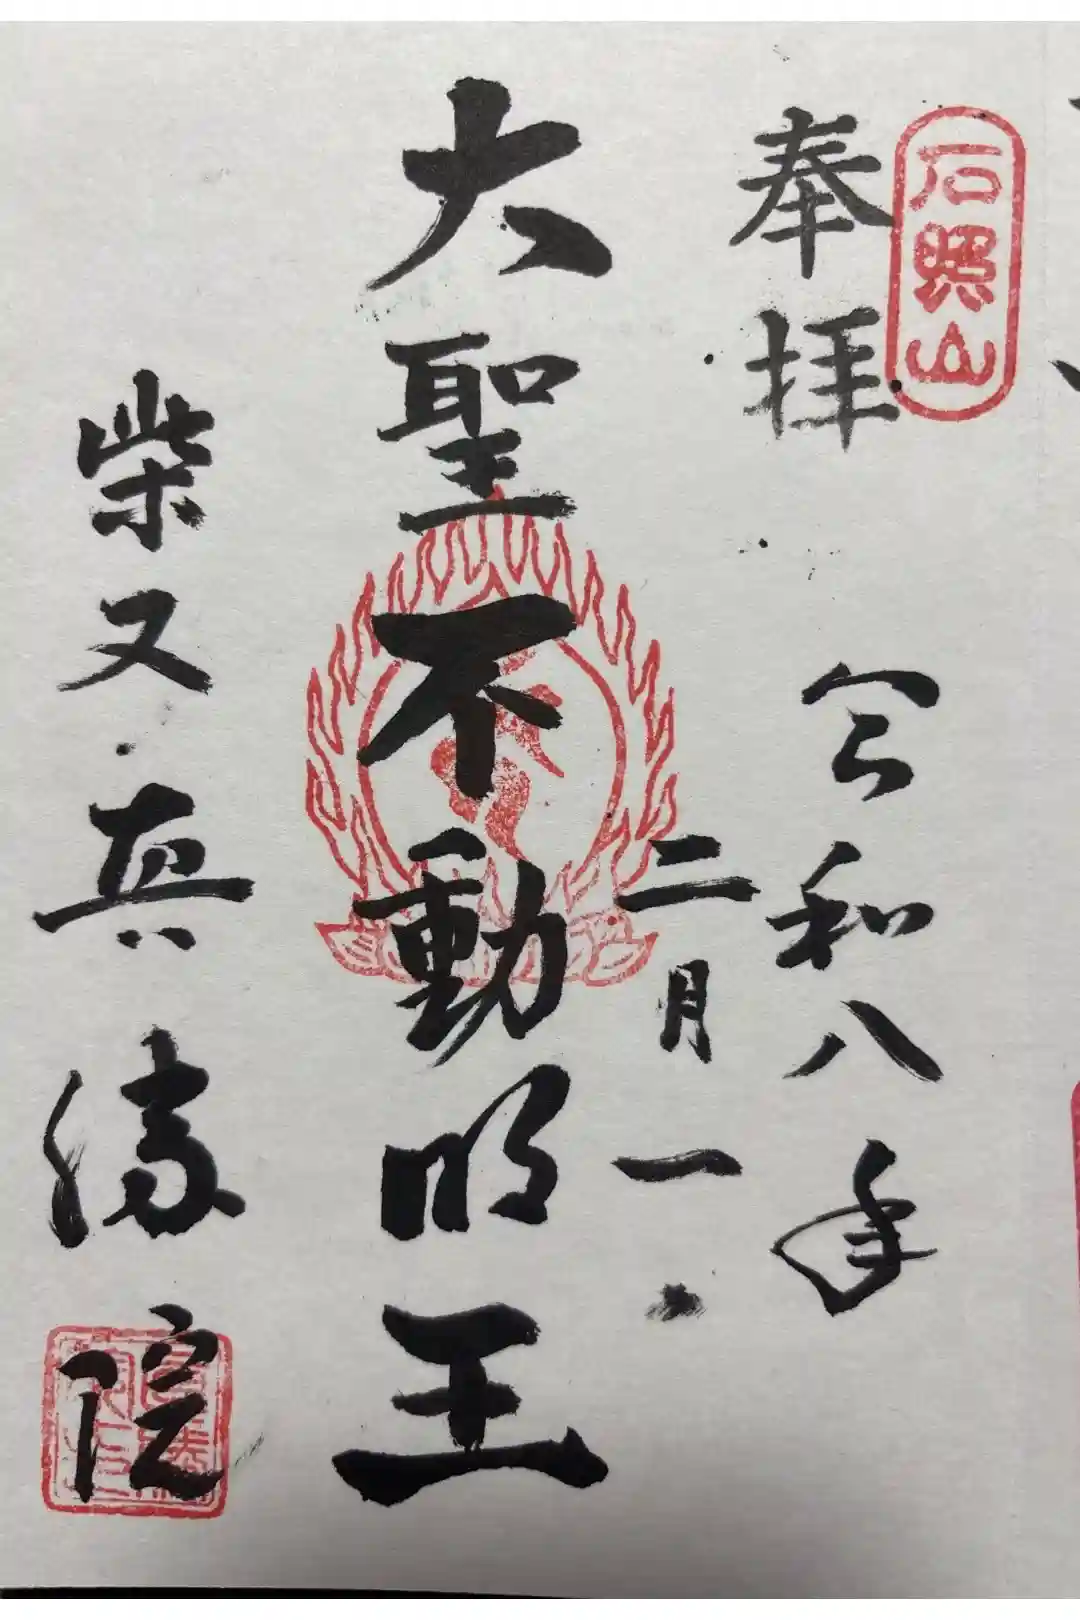 石照山
奉拝
令和八年
二月一日
大聖不動明王
柴又 真勝院